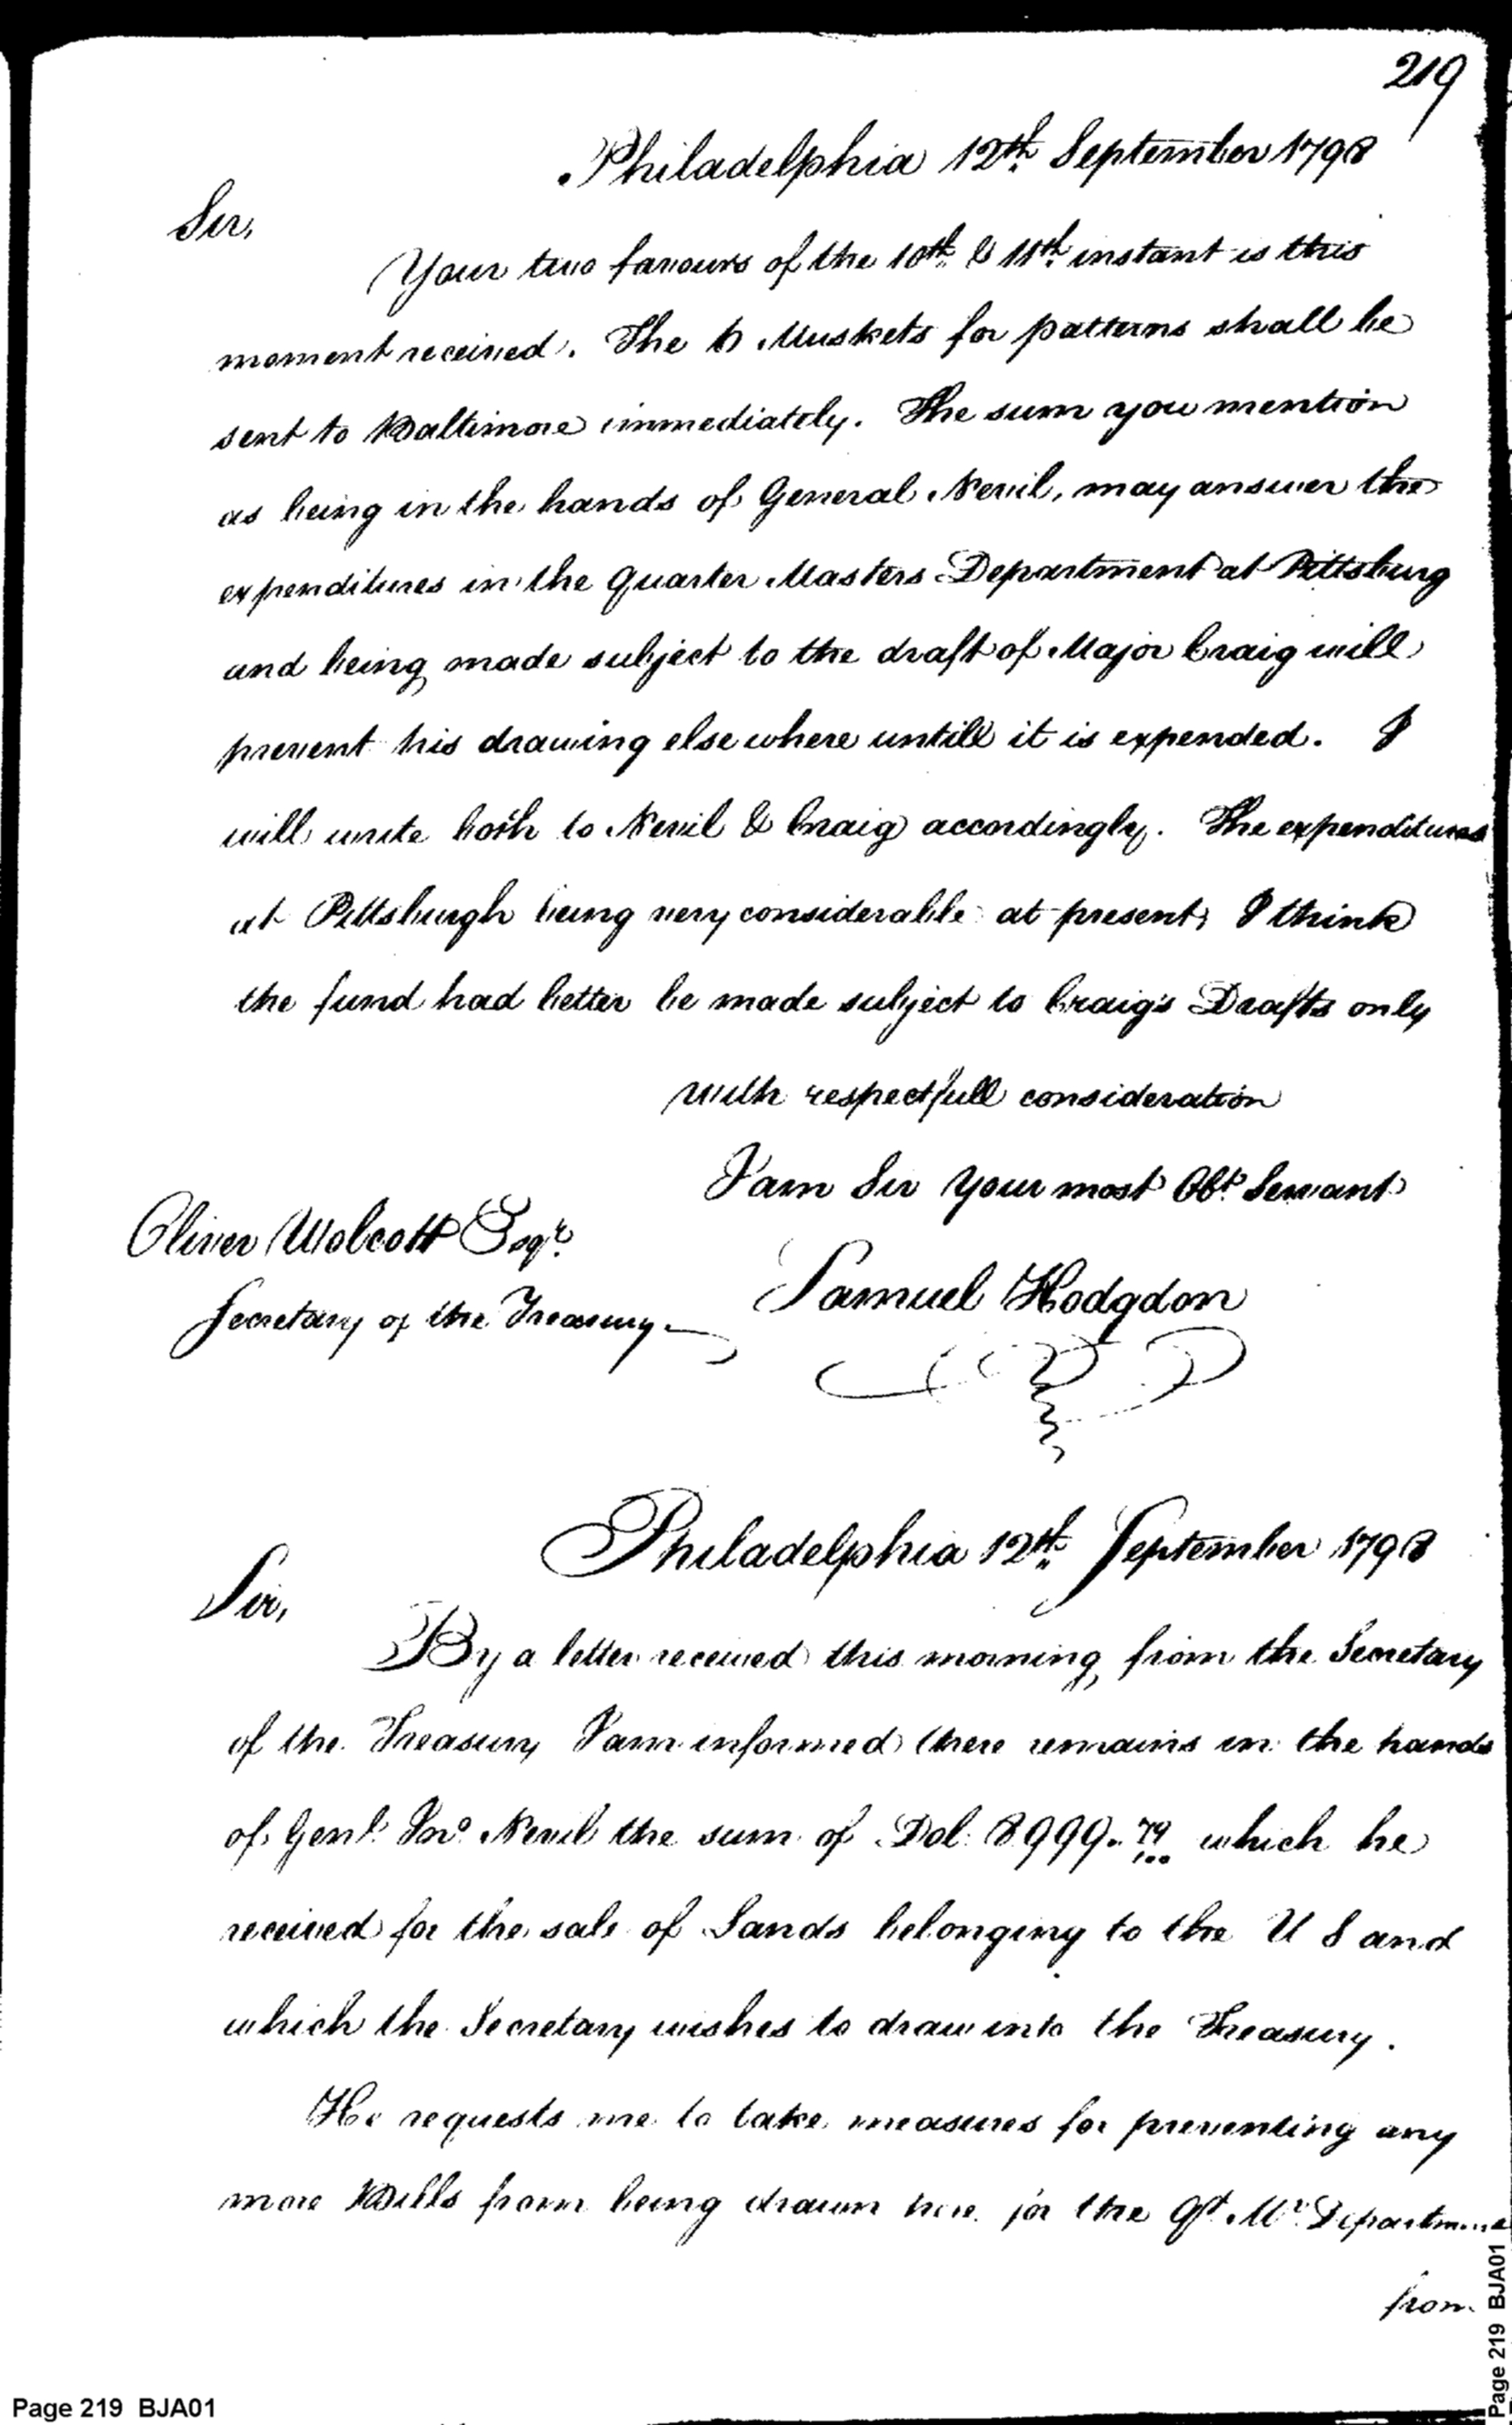 219
Philadelphia 12th September 1798
Sir,
Your two favours of the 10th & 11th instant is this
moment received. The 6 Muskets for patterns shall be
sent to Baltimore immediately. The sum you mention
as being in the hands of General Nevil, may answer the
expenditures in the Quarter Masters Department at Pittsburg
and being made subject to the draft of Major Craig will
prevent his drawing elsewhere untill it is expended. I
will write both to Nevil & Craig accordingly. The expenditures
at Pittsburgh being very considerable at present, I think
the fund had better be made subject to Craig's Drafts only
with respectfull consideration
I am Sir Your most Obt Servant
Oliver Wolcott Esqr.
Samuel Hodgdon
Secretary of the Treasury.
Philadelphia 12th September 1798
Sir,
By a letter received this morning, from the Secretary
of the Treasury I am informed there remains in the hands
of Genl. Jno Nevil the sum of Dol: 8999. 79/100 which he
received for the sale of Lands belonging to the U S and
which the Secretary wishes to draw into the Treasury.
He requests me to take measures for preventing any
more Bills from being drawn here for the Qt. Mr. Department
from
Page 219 BJA01
Page 219 BJA01